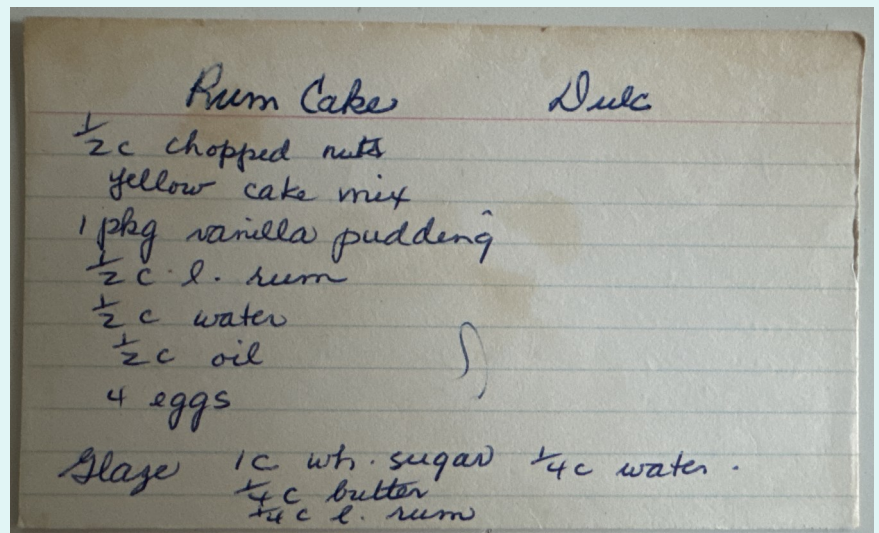 Rum Cake Dulc
1/2 c chopped nuts
yellow cake mix
1 pkg vanilla pudding
1/2 c. l. rum
1/2 c water
1/2 c oil
4 eggs
Glaze 1c wh. sugar 1/4 c water.
1/4 c butter
1/4 c l. rum